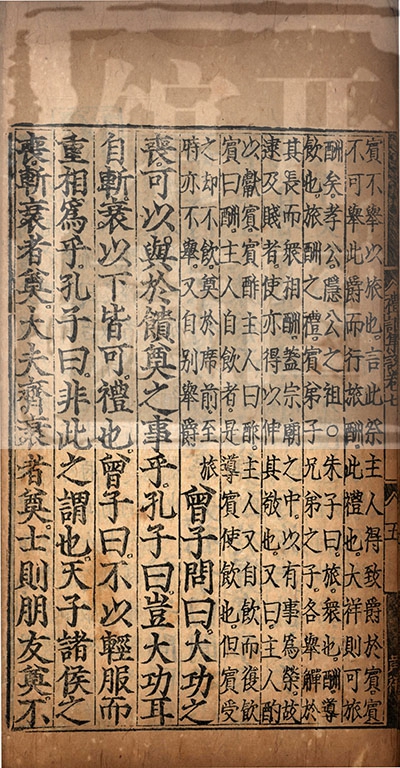 禮記集說卷七 五
賓不舉以旅也言此祭主人得致爵於賓賓
不可舉此爵而行旅酬此禮也大祥則可旅
酬矣孝公隱公之祖○朱子曰旅衆也酬導
飲也旅酬之禮賓弟子兄弟之子各舉觶於
其長而衆相酬蓋宗廟之中以有事爲榮故
逮及賤者使亦得以伸其敬也又曰主人酌
以獻賓賓酢主人曰酢主人又自飲而復飲
賓曰酬主人自飲者是導賓使飲也但賓受
之却不飲奠於席前至旅
時亦不舉又自別舉爵
曾子問曰大功之
喪可以與於饋奠之事乎孔子曰豈大功耳
自斬衰以下皆可禮也曾子曰不以輕服而
重相爲乎孔子曰非此之謂也天子諸侯之
喪斬衰者奠大夫齊衰者奠士則朋友奠不